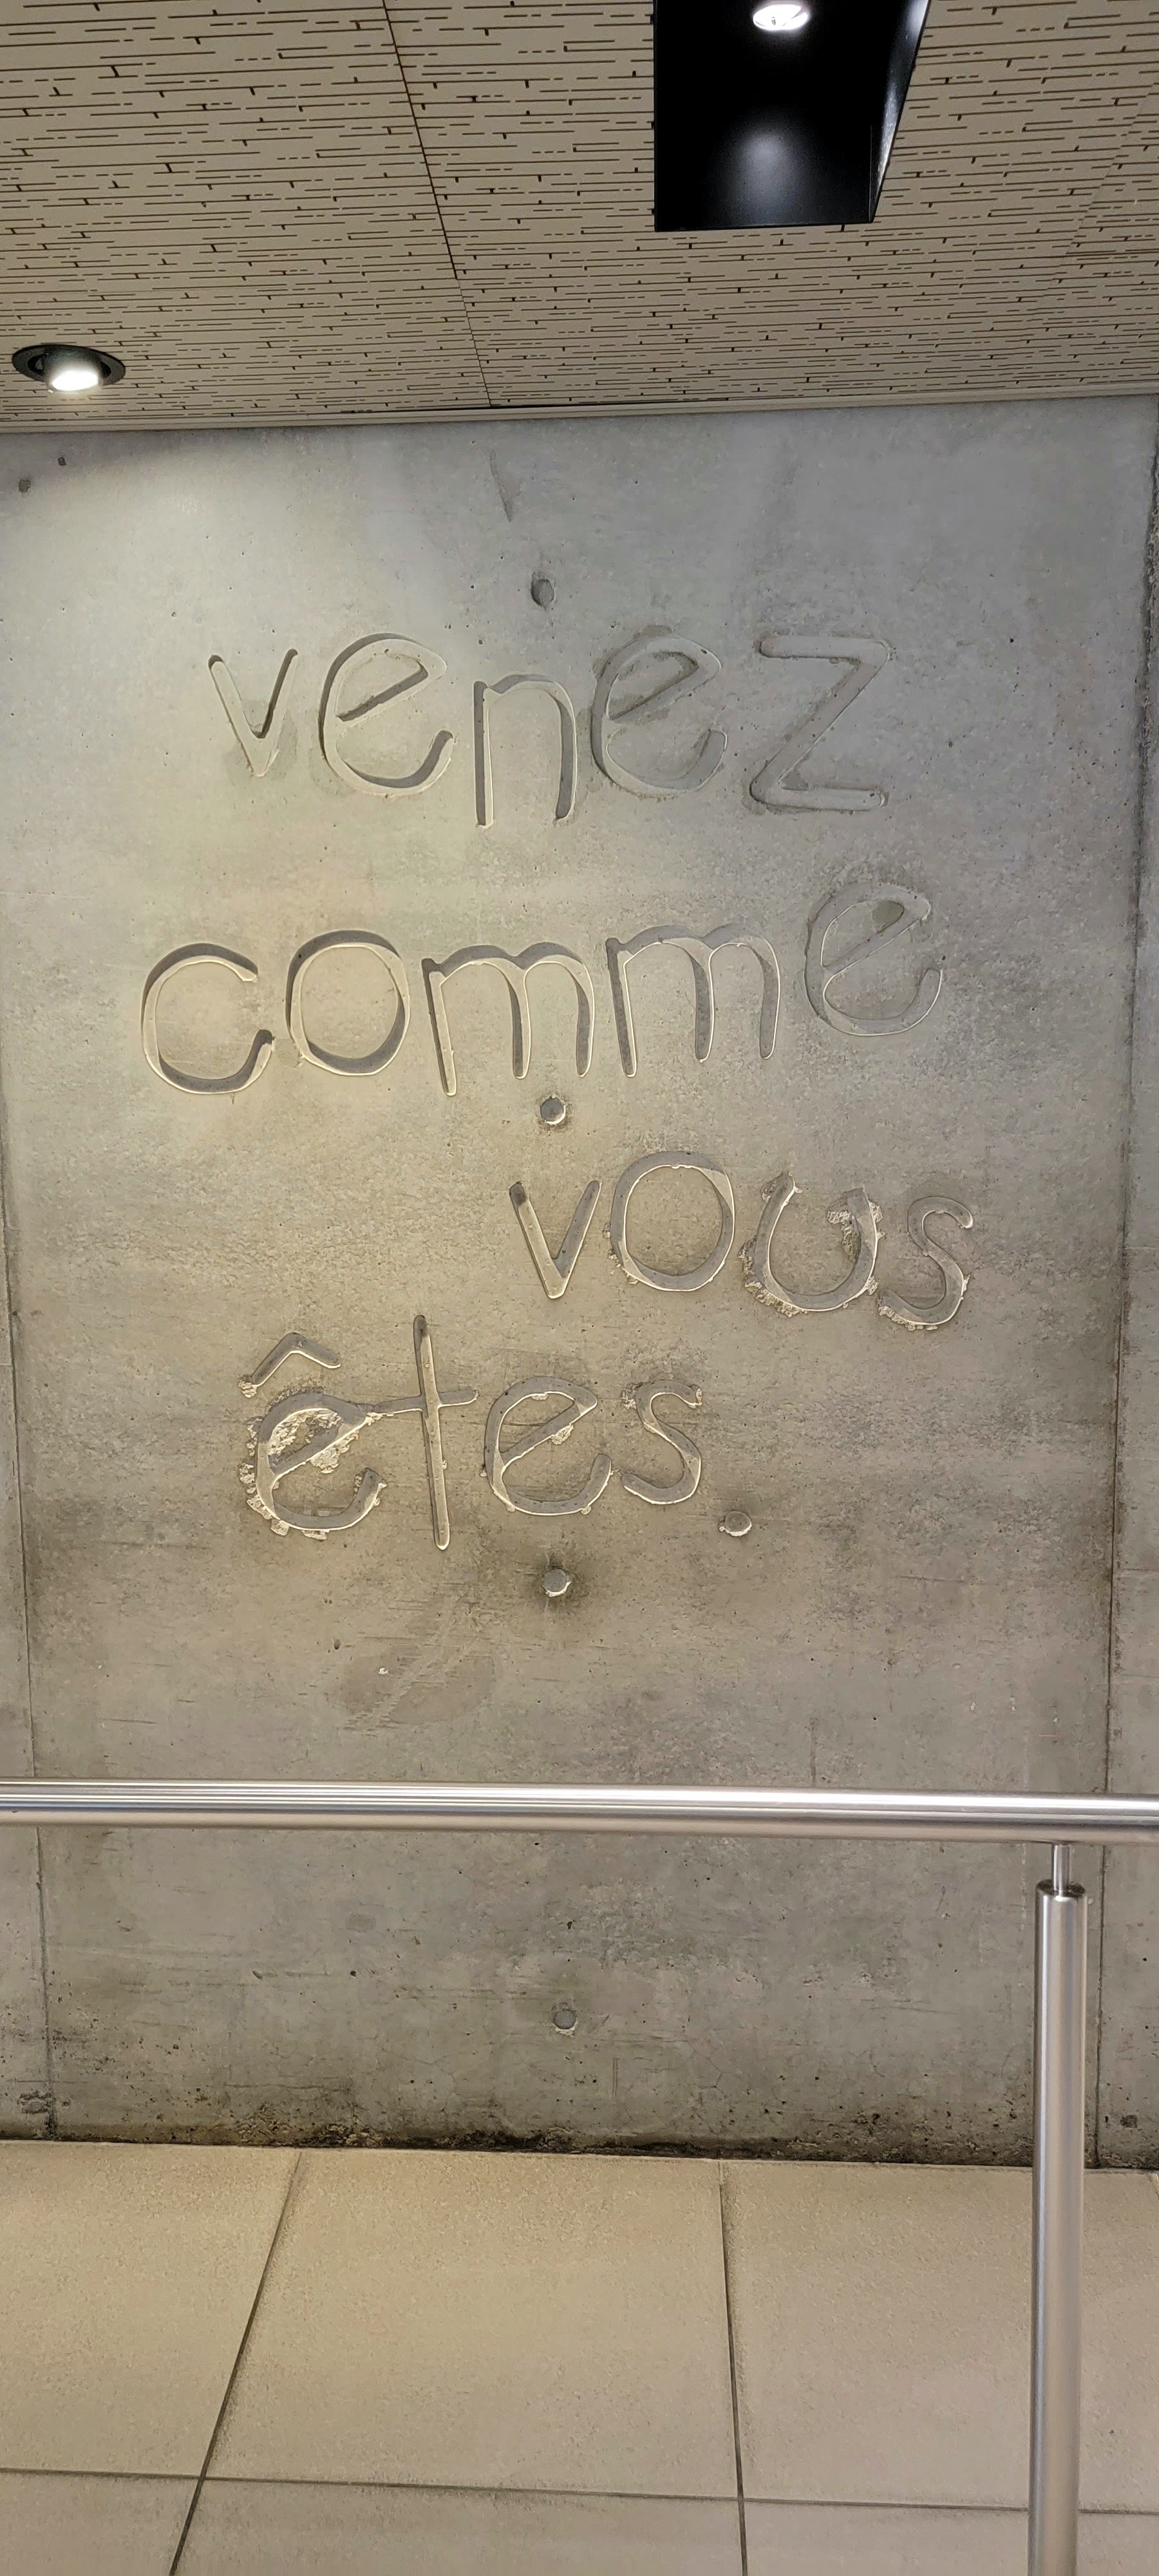 venez
comme
vous
êtes.